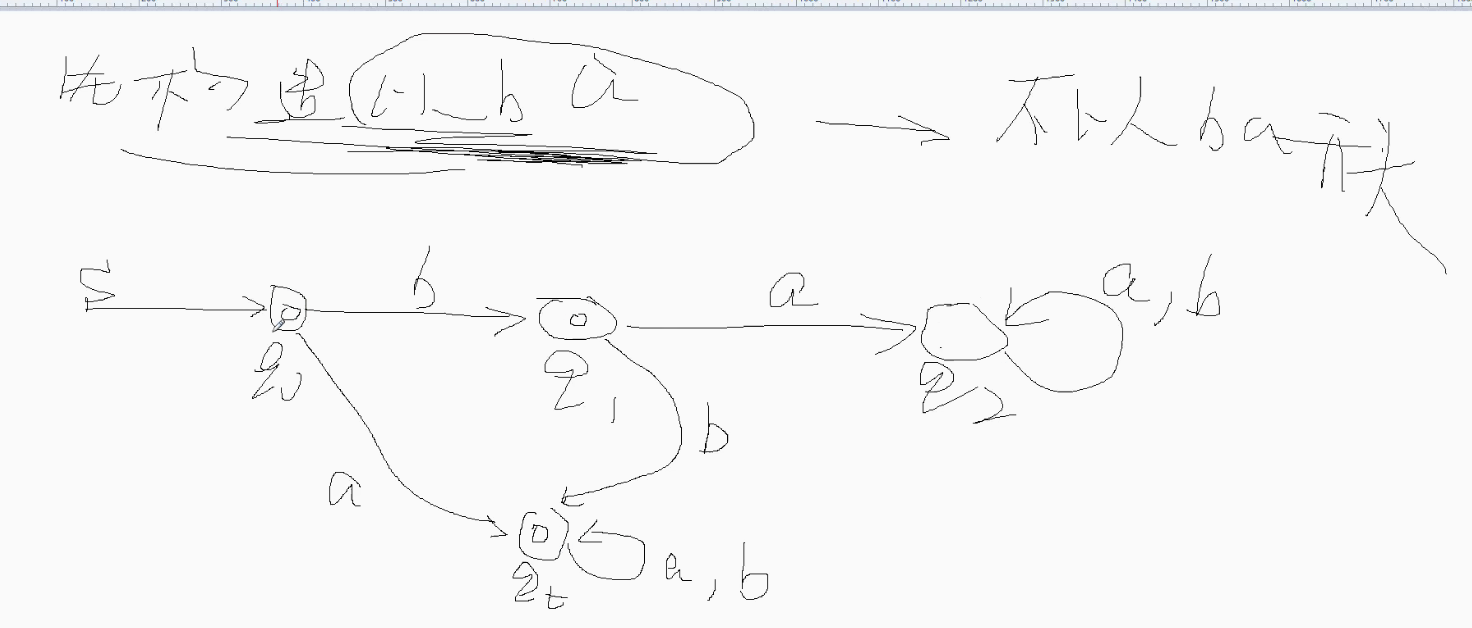 先构造以ba → 不以ba开头
S b a a,b
q0 q1 q2
b
a
qt a,b